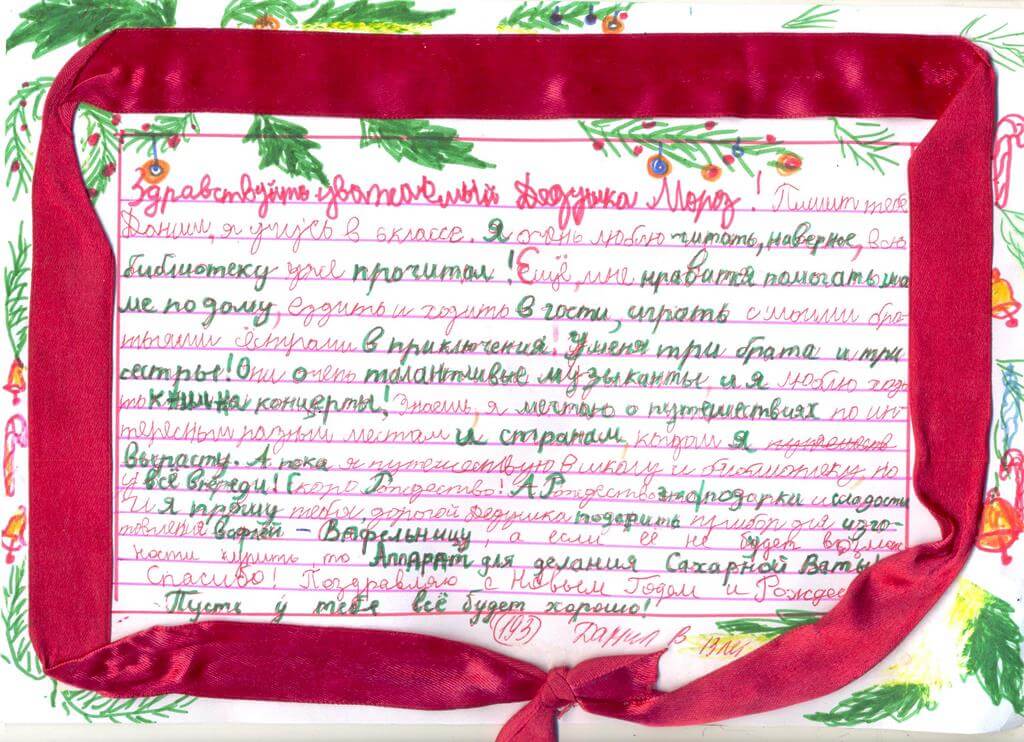 Здравствуйте уважаемый Дедушка Мороз! Пишит тебе
Даниил, я учусь в 6 классе. Я очень люблю читать, наверное, всю
библиотеку уже прочитал! Ещё, мне нравится помогать ма
ме по дому, ездить и ходить в гости, играть с моими бра-
тьями сёстрами в приключения! У меня три брата и три
сестры! Они очень талантливые музыканты и я люблю ходи
ть на концерты! Знаешь, я мечтаю о путешествиях по ин-
тересным разным местам и странам, когда я
вырасту. А пока я путешествую в школу и библиотеку но
у всё впереди! Скоро Рождество! А Рождество это подарки и сладости
И я прошу тебя дорогой Дедушка подарить прибор для изго-
товления вафлей - Вафельницу, а если её не будет возмож
ности купить то Аппарат для делания Сахарной Ваты!
Спасибо! Поздравляю с Новым Годом и Рождес
Пусть у тебя всё будет хорошо!
193 Даниил В 13 лет